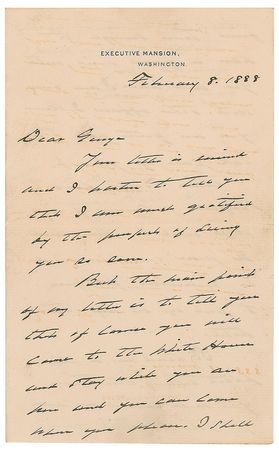 EXECUTIVE MANSION,
WASHINGTON.
February 8. 1888
Dear George
Your letter is received
and I hasten to tell you
that I am much gratified
by the prospect of seeing
you so soon.
But the main point
of my letter is to tell you
that of course you will
come to the White House
and stay while you are
here and you can come
when you please. I shall